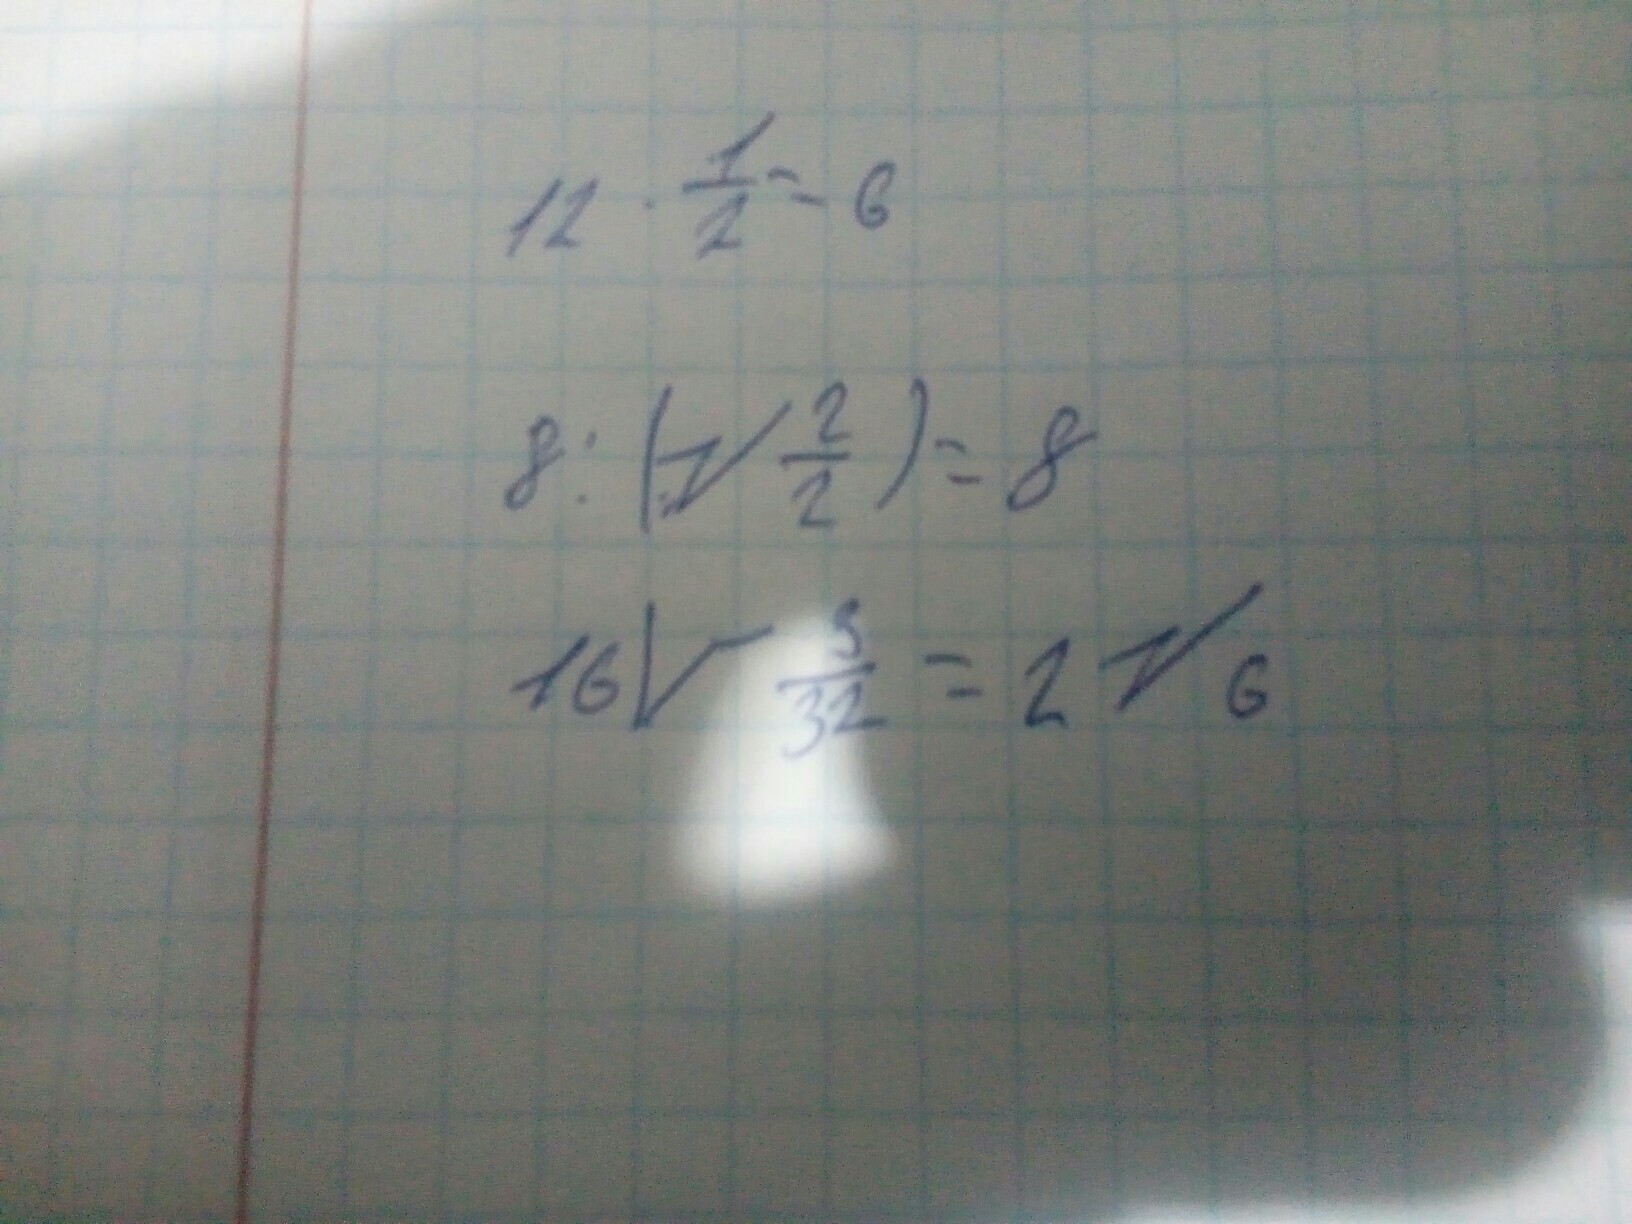 12 · 1/2 = 6
8 : (√ 2/2) = 8
16 √ 3/32 = 2 √ 6